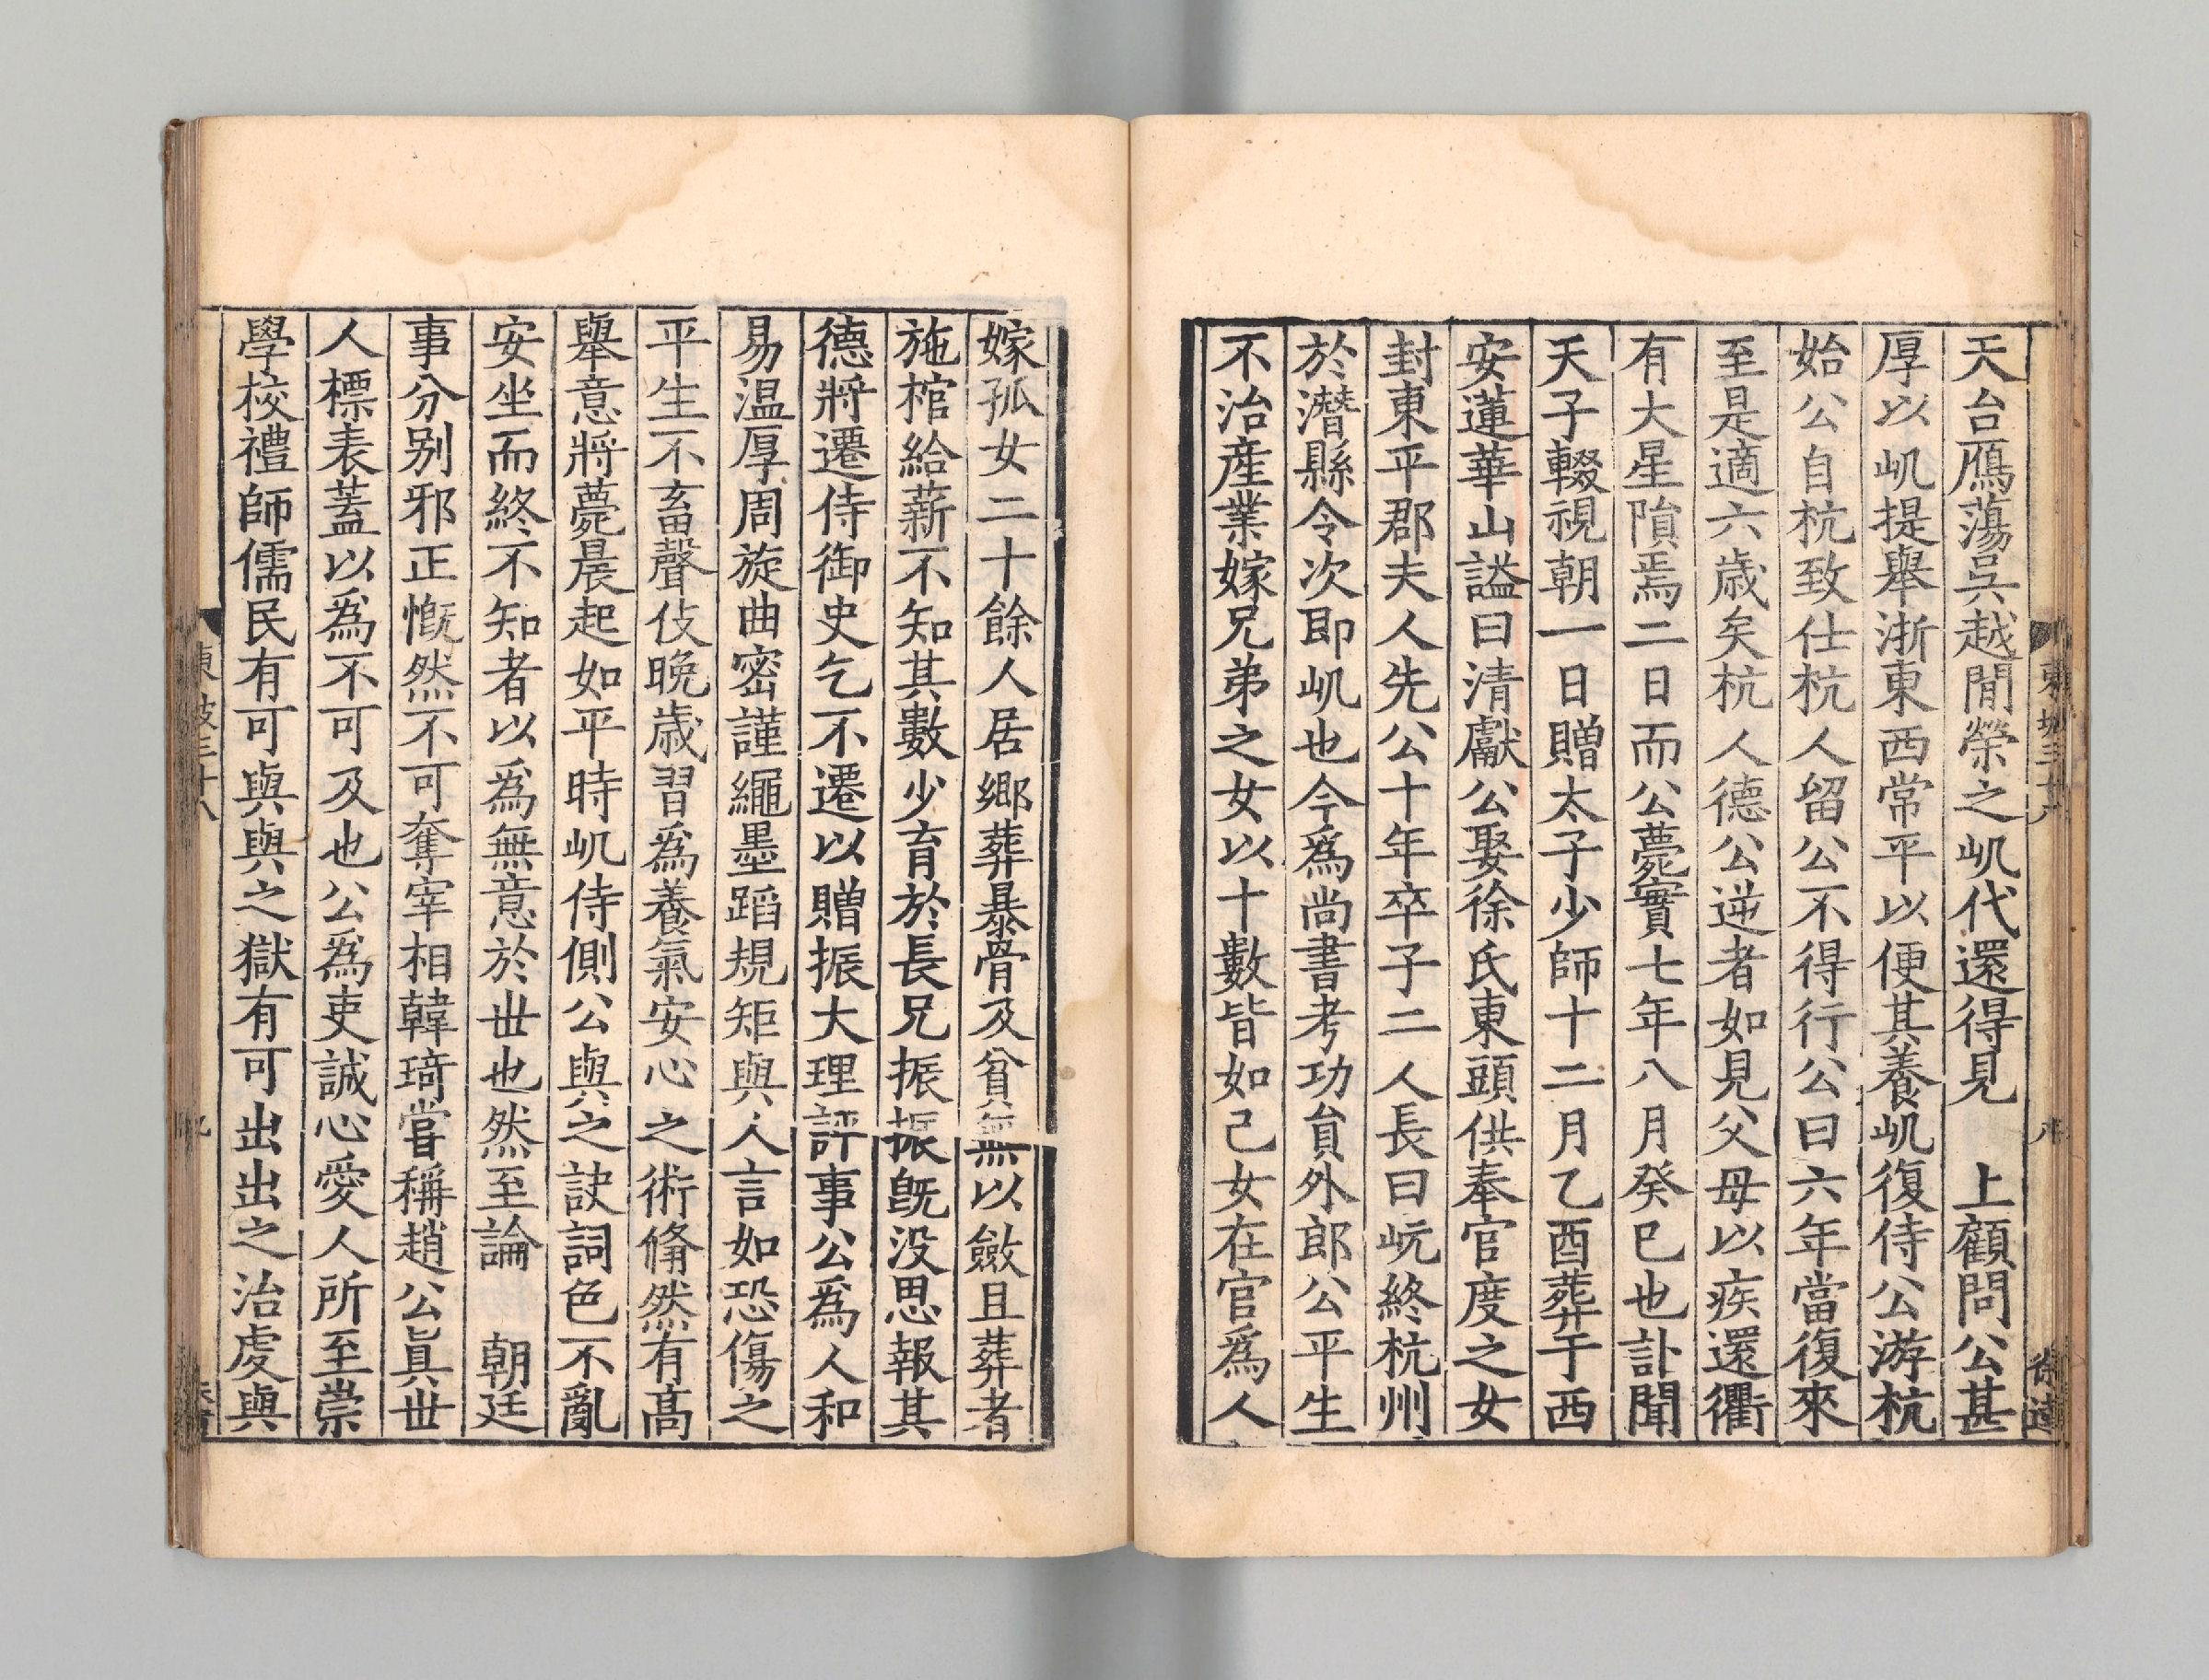 天台鴈蕩吳越閒榮之屼代還得見　上顧問公甚
厚以屼提舉浙東西常平以便其養屼復侍公游杭
始公自杭致仕杭人留公不得行公曰六年當復來
至是適六歲矣杭人德公逆者如見父母以疾還衢
有大星隕焉二日而公薨實七年八月癸巳也訃聞
天子輟視朝一日贈太子少師十二月乙酉葬于西
安蓮華山謚曰清獻公娶徐氏東頭供奉官度之女
封東平郡夫人先公十年卒子二人長曰岏終杭州
於潛縣令次即屼也今爲尚書考功貟外郎公平生
不治產業嫁兄弟之女以十數皆如己女在官爲人
嫁孤女二十餘人居鄉葬暴骨及貧無以斂且葬者
施棺給薪不知其數少育於長兄振振旣没思報其
德將遷侍御史乞不遷以贈振大理評事公爲人和
易温厚周旋曲密謹繩墨蹈規矩與人言如恐傷之
平生不畜聲伎晚歲習爲養氣安心之術翛然有高
舉意將薨晨起如平時屼侍側公與之訣詞色不亂
安坐而終不知者以爲無意於世也然至論　朝廷
事分别邪正慨然不可奪宰相韓琦嘗稱趙公眞世
人標表蓋以爲不可及也公爲吏誠心愛人所至崇
學校禮師儒民有可與與之獄有可出出之治虔與
東坡三十八
八
東坡三十八
九